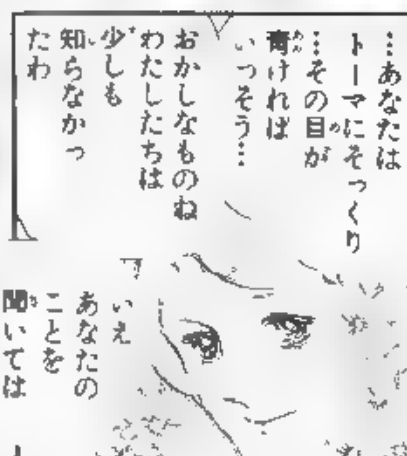 …あなたは
トーマにそっくり
…その目が
青ければ
いっそう…
おかしなものね
わたしたちは
少しも
知らなかっ
たわ
いえ
あなたの
ことを
聞いては